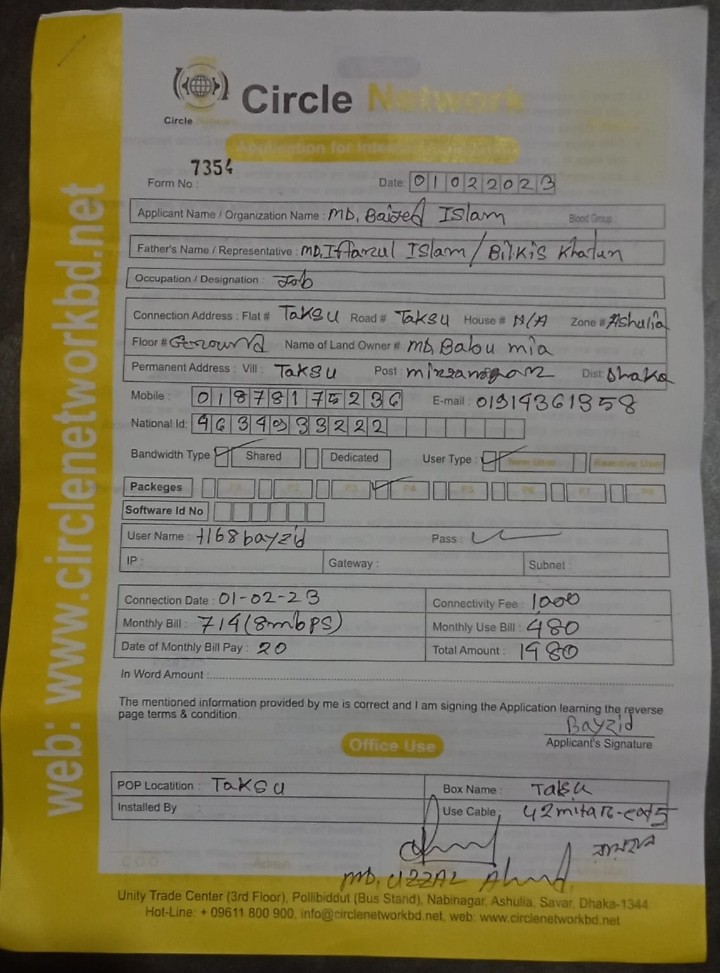 Circle Network
Circle Network
Application for Internet
7354
Form No :
Date: 01022023
Applicant Name / Organization Name : MD, Baized Islam Blood Group
Father's Name / Representative : MD, Iftarzul Islam / Bilkis Khatun
Occupation / Designation : Job
Connection Address : Flat # Taksu Road # Taksu House # N/A Zone # Ashulia
Floor # Geround Name of Land Owner # MD, Babu mia
Permanent Address : Vill : Taksu Post : Dist: Dhaka
Mobile : 01878175236 E-mail : 01914361958
National Id: 4634933222
Bandwidth Type Shared Dedicated User Type : New User Reactive User
Packeges P1 P2 P3 P4 P5 P6 P7 P8
Software Id No
User Name : 1168bayzid Pass :
IP : Gateway : Subnet :
Connection Date : 01-02-23 Connectivity Fee : 1000
Monthly Bill : 714 (8mbPS) Monthly Use Bill : 480
Date of Monthly Bill Pay : 20 Total Amount : 1480
In Word Amount :
The mentioned information provided by me is correct and I am signing the Application learning the reverse
page terms & condition.
Bayzid
Applicant's Signature
Office Use
POP Locatition : Taksu Box Name : Taksu
Installed By : Use Cable : 42mitar-cat5
MD, UZZAL Ahmed
Unity Trade Center (3rd Floor), Pollibiddut (Bus Stand), Nabinagar, Ashulia, Savar, Dhaka-1344
Hot-Line: + 09611 800 900, info@circlenetworkbd.net, web: www.circlenetworkbd.net
web: www.circlenetworkbd.net